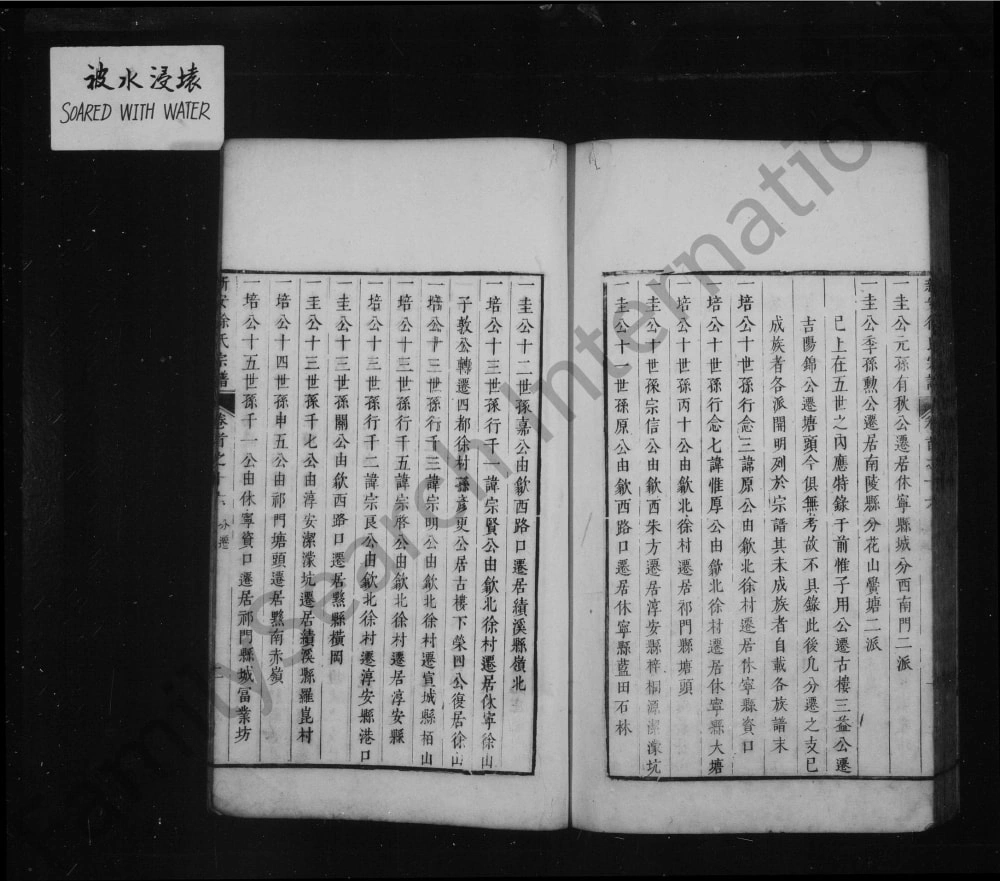 被水浸壊
SOARED WITH WATER
一圭公元孫有秋公遷居休寧縣城分西南門二派
一圭公季孫勲公遷居南陵縣分花山黌塘二派
已上在五世之內應特錄于前惟子用公遷古樓三益公遷
吉陽錦公遷塘頭今俱無考故不具錄此後凡分遷之支已
成族者各派開明列於宗譜其未成族者自載各族譜末
一培公十世孫行念三諱原公由歙北徐村遷居休寧縣資口
一培公十世孫行念七諱惟厚公由歙北徐村遷居休寧縣大塘
一培公十世孫丙十公由歙北徐村遷居祁門縣塘頭
一圭公十世孫宗信公由歙西朱方遷居淳安縣梓桐源潔濛坑
一圭公十一世孫原公由歙西路口遷居休寧縣藍田石林
一圭公十二世孫嘉公由歙西路口遷居績溪縣嶺北
一培公十三世孫行千一諱宗賢公由歙北徐村遷居休寧徐山
子敦公轉遷四都徐村孫彦更公居古樓下榮回公復居徐山
一培公十三世孫行千三諱宗明公由歙北徐村遷宣城縣栢山
一培公十三世孫行千五諱宗啓公由歙北徐村遷居淳安縣
一培公十三世孫行千二諱宗良公由歙北徐村遷淳安縣港口
一圭公十三世孫關公由歙西路口遷居黟縣橫岡
一圭公十三世孫千七公由淳安潔濛坑遷居績溪縣羅昆村
一培公十四世孫申五公由祁門塘頭遷居黟南赤嶺
一培公十五世孫千一公由休寧資口遷居祁門縣城冨業坊
新安徐氏宗譜
卷首之十六 分遷
FamilySearch International